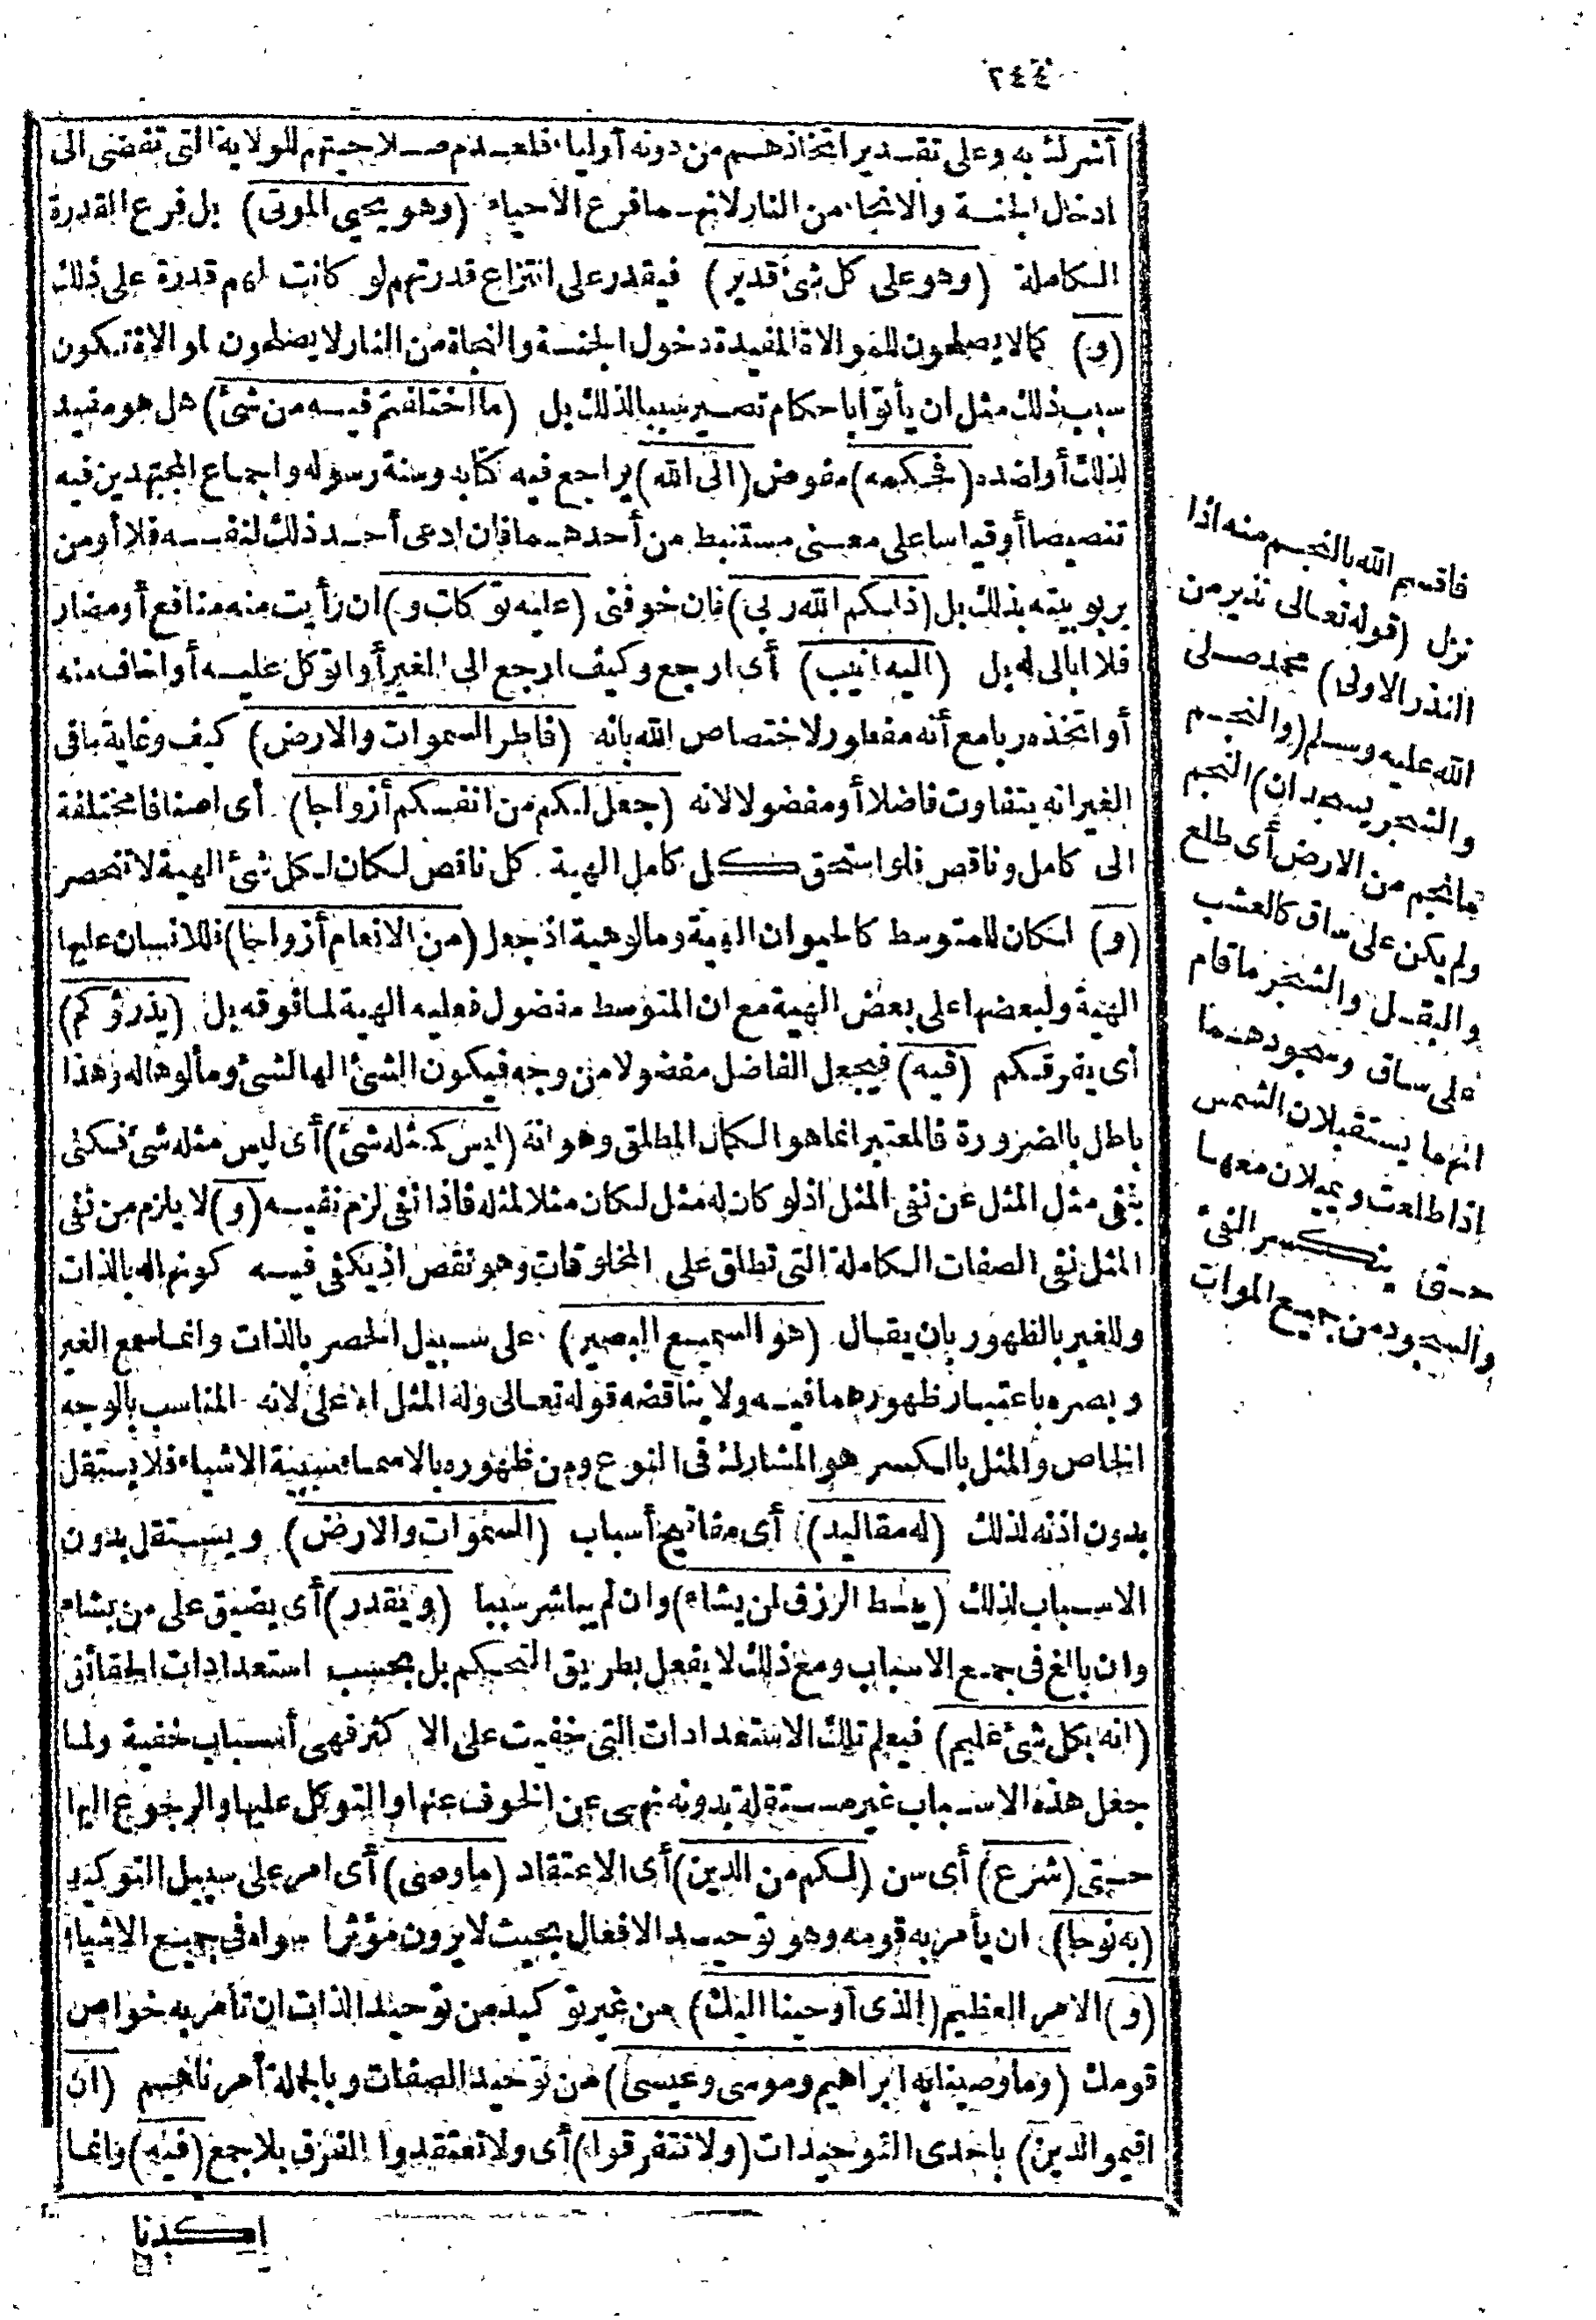 ٢٤٤
أشرك به وعلى تقدير اتخاذهم من دونه أولياء فلعدم صلاحيتهم للولاية التى تفضى الى
ادخال الجنة والانجاء من النار لانهما فرع الاحياء (وهو يحيى الموتى) بل فرع القدرة
الكاملة (وهو على كل شئ قدير) فيقدر على انتزاع قدرتهم لو كانت لهم قدرة على ذلك
(و) كما لا يصلحون للموالاة المفيدة دخول الجنة والنجاة من النار لا يصلحون لموالاة تكون
سبب ذلك مثل ان يأتوا باحكام تصير سببا لذلك بل (ما اختلفتم فيه من شئ) هل هو مفيد
لذلك أو لضده (فحكمه) مفوض (الى الله) يراجع فيه كتابه وسنة رسوله واجماع المجتهدين فيه
تنصيصا أو قياسا على معنى مستنبط من أحدهما فان ادعى أحد ذلك لنفسه فلا أومن
بربوبيته بذلك بل (ذلكم الله ربى) فان خوفنى (عليه توكلت و) ان رأيت منه منافع أو مضار
فلا ابالى له بل (اليه انيب) أى ارجع وكيف ارجع الى الغير أو اتوكل عليه أو اخاف منه
أو اتخذه ربا مع أنه مفطور لاختصاص الله بانه (فاطر السموات والارض) كيف وغاية باقى
الغير انه يتفاوت فاضلا أو مفضولا لانه (جعل لكم من انفسكم أزواجا) أى اصنافا مختلفة
الى كامل وناقص فلو استحق كل كامل الهية كل ناقص لكان لكل شئ الهية لا تنحصر
(و) لكان للمتوسط كالحيوان الهية ومألوهية اذ جعل (من الانعام أزواجا) فللانسان عليها
الهية ولبعضها على بعض الهية مع ان المتوسط مفضول فعليه الهية لما فوقه بل (يذرؤكم)
أى يفرقكم (فيه) فيجعل الفاضل مفضولا من وجه فيكون الشئ الها لشئ ومألوها له وهذا
باطل بالضرورة فالمعتبر انما هو الكمال المطلق وهو انه (ليس كمثله شئ) أى ليس مثله شئ فكنى
بنفى مثل المثل عن نفى المثل اذ لو كان له مثل لكان مثلا لمثله فاذا نفى لزم نفيه (و) لا يلزم من نفى
المثل نفى الصفات الكاملة التى تطلق على المخلوقات وهو نقص اذ يكفى فيه كونها له بالذات
وللغير بالظهور بان يقال (هو السميع البصير) على سبيل الحصر بالذات وانما سمع الغير
وبصره باعتبار ظهورهما فيه ولا يناقضه قوله تعالى وله المثل الاعلى لانه المناسب بالوجه
الخاص والمثل بالكسر هو المشارك فى النوع ومن ظهوره بالاسماء سببية الاشياء فلا يستقل
بدون اذنه لذلك (له مقاليد) أى مفاتيح أسباب (السموات والارض) ويستقل بدون
الاسباب لذلك (يبسط الرزق لمن يشاء) وان لم يباشر سببا (ويقدر) أى يضيق على من يشاء
وان بالغ فى جميع الاسباب ومع ذلك لا يفعل بطريق التحكم بل بحسب استعدادات الحقائق
(انه بكل شئ عليم) فيعلم تلك الاستعدادات التى خفيت على الاكثر فهى أسباب خفية ولما
جعل هذه الاسباب غير مستقلة بدونه نهى عن الخوف عنها والتوكل عليها والرجوع اليها
حتى (شرع) أى سن (لكم من الدين) أى الاعتقاد (ما وصى) أى امر على سبيل التوكيد
(به نوحا) ان يأمر به قومه وهو توحيد الافعال بحيث لا يرون مؤثرا سواه فى جميع الاشياء
(و) الامر العظيم (الذى أوحينا اليك) من غير توكيد من توحيد الذات ان تأمر به خواص
قومك (وما وصينا به ابراهيم وموسى وعيسى) من توحيد الصفات وبالجملة أمرناهم (ان
اقيموا الدين) باحدى التوحيدات (ولا تتفرقوا) أى ولا تعتقدوا الفرق بلا جمع (فيه) وانما
فاقسم الله بالنجم منه اذا
نزل (قوله تعالى نذير من
النذر الاولى) محمد صلى
الله عليه وسلم (والنجم
والشجر يسجدان) النجم
ما نجم من الارض أى طلع
ولم يكن على ساق كالعشب
والبقل والشجر ما قام
على ساق وسجودهما
انهما يستقبلان الشمس
اذا طلعت ويميلان معها
حتى ينكسر الفئ
والسجود من جميع الموات